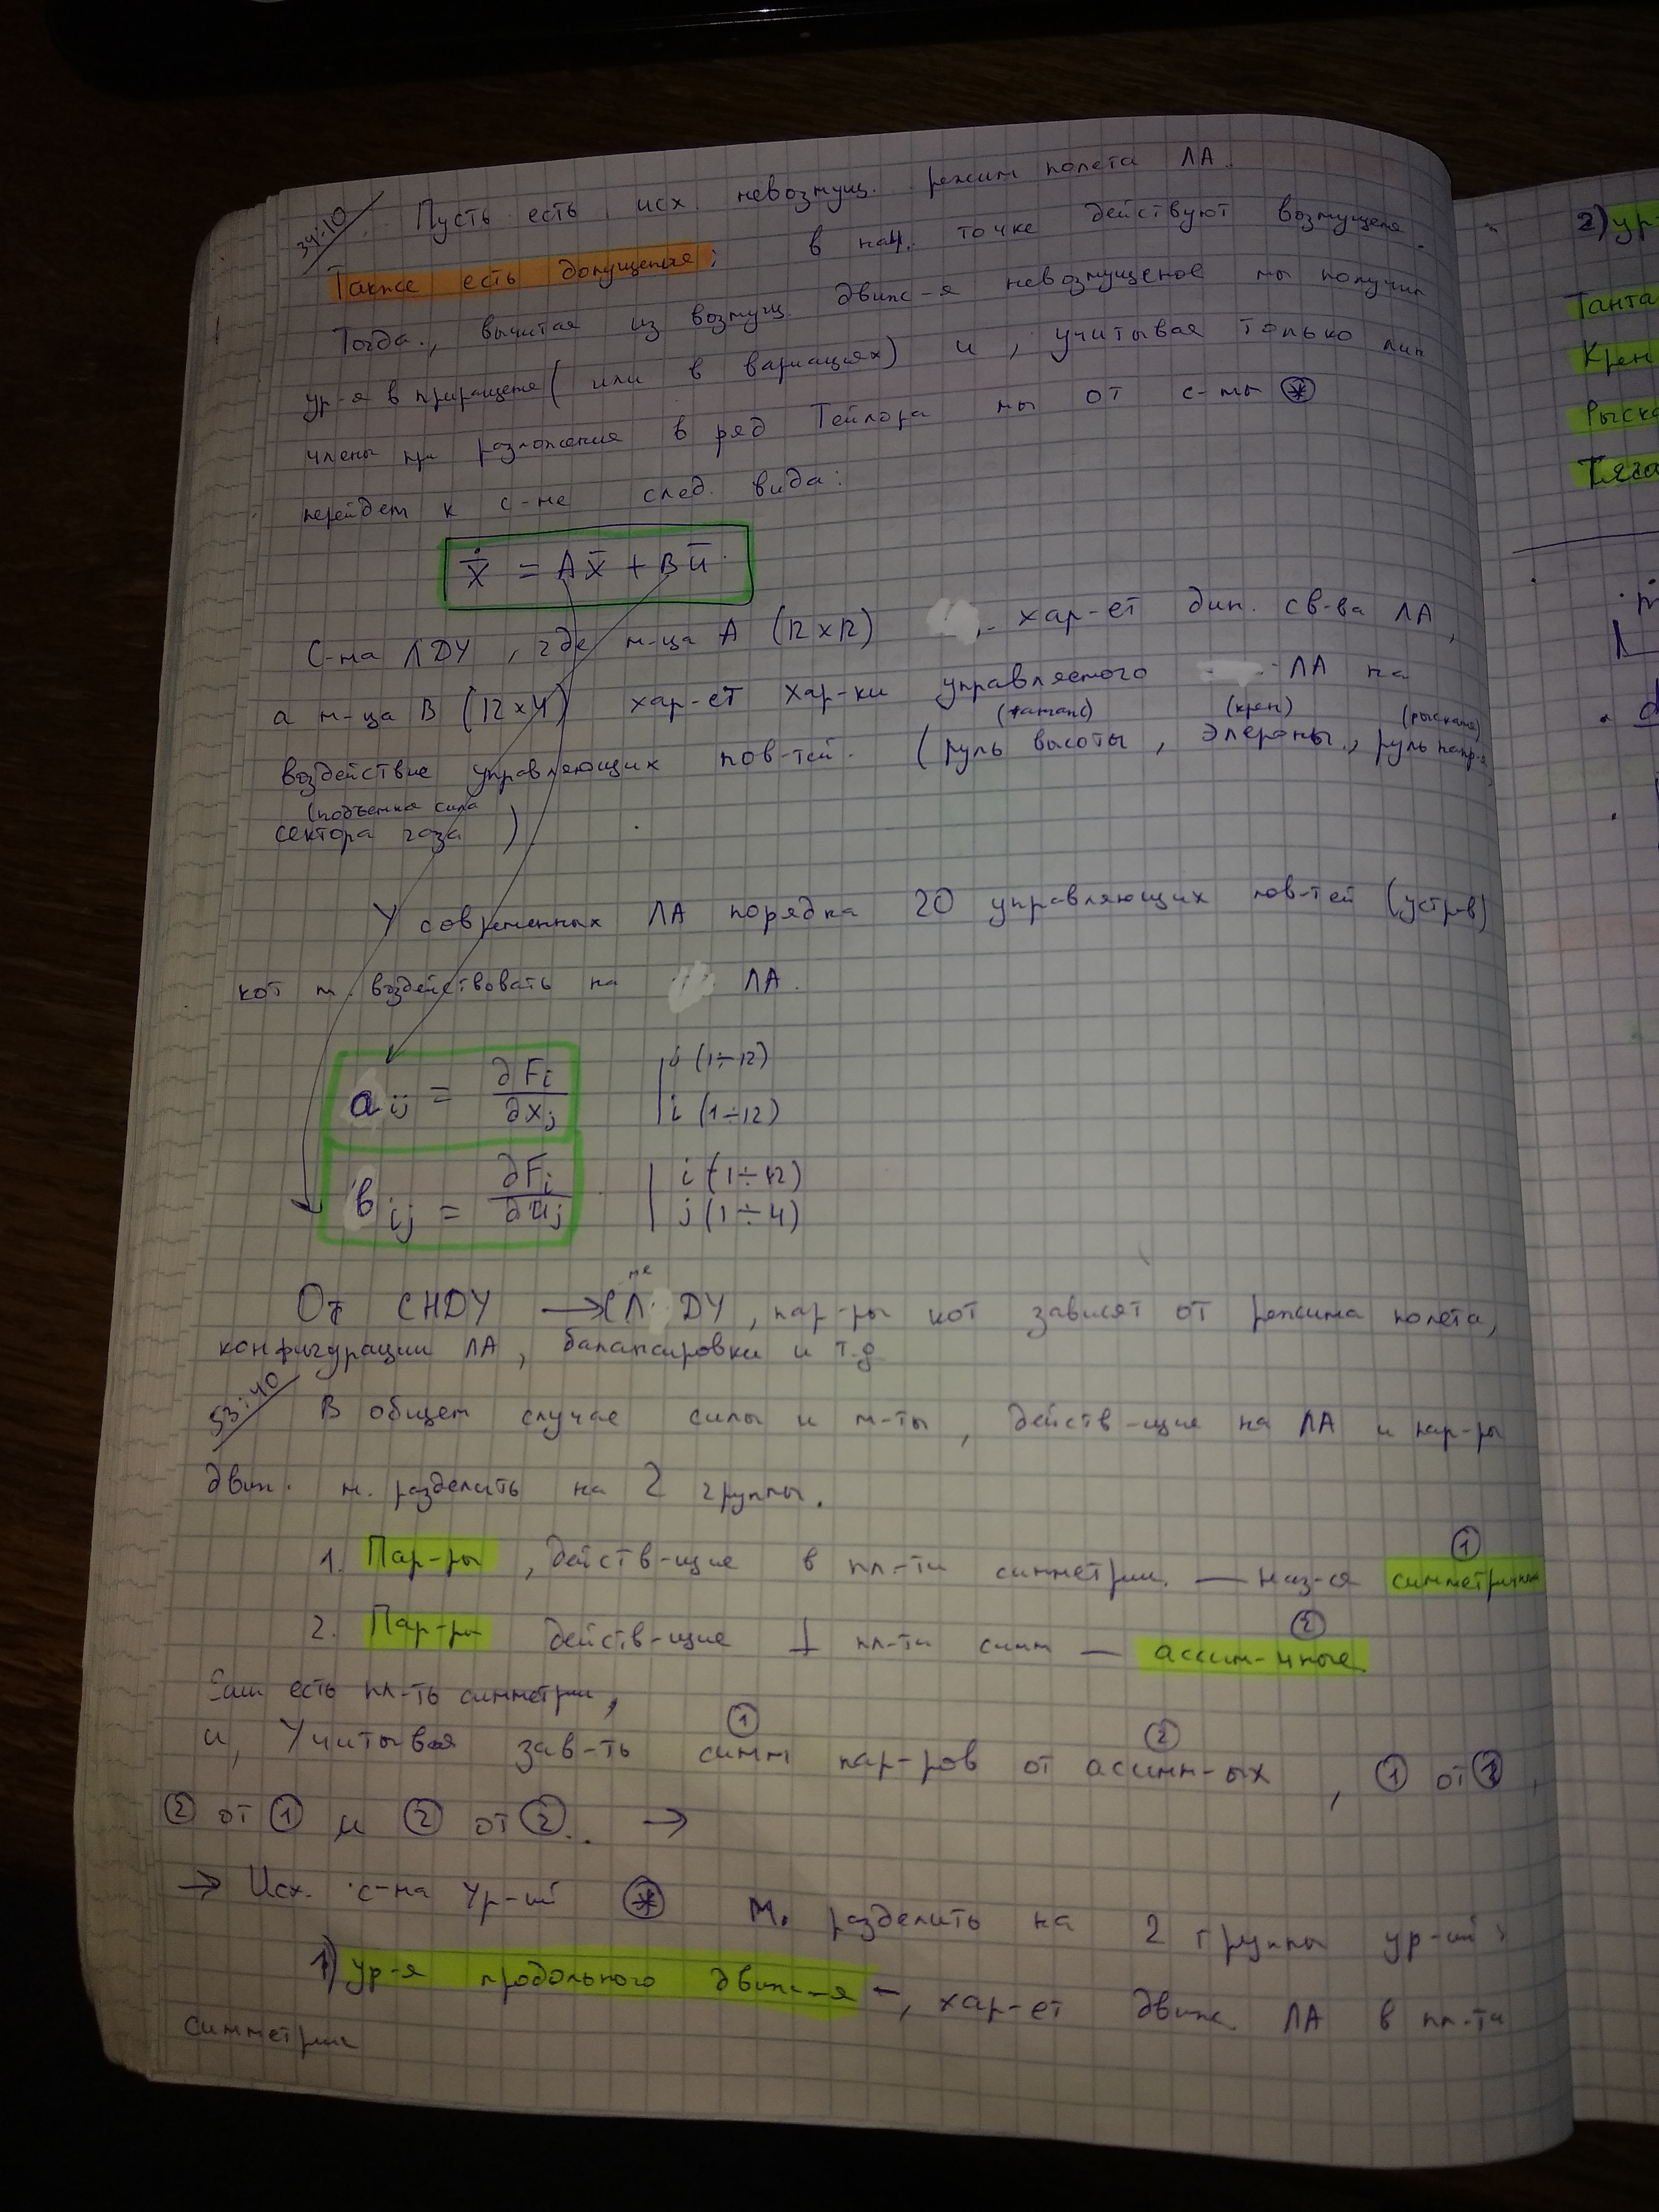 34:10 Пусть есть исх. невозмущ. режим полета ЛА.
Также есть допущения: в нач. точке действуют возмущения.
Тогда, вычитая из возмущ. движ-я невозмущеное мы получим
ур-я в приращения (или в вариациях) и, учитывая только лин
члены при разложения в ряд Тейлора мы от с-мы *
перейдем к с-ме след. вида:
ẋ̄ = Ax̄ + Bū
С-ма ЛДУ, где м-ца A (12x12) хар-ет дин. св-ва ЛА,
а м-ца B (12x4) хар-ет хар-ки управляемого ЛА на
(тангаж) (крен) (рыскание)
воздействие управляющих пов-тей. (руль высоты, элероны, руль напр-я
(подъемна сила
сектора газа)
У современных ЛА порядка 20 управляющих пов-тей (устров)
кот м. воздействовать на ЛА.
a ij = ∂Fi/∂xj | j (1÷12)
i (1÷12)
b ij = ∂Fi/∂uj | i (1÷12)
j (1÷4)
От СНДУ → СЛ ДУ, пар-ры кот зависят от режима полета,
конфигурации ЛА, балансировки и т.д
53:40 В общем случае силы и м-ты, действ-щие на ЛА и пар-ры
движ. м. разделить на 2 группы.
1. Пар-ры, действ-щие в пл-ти симметрии. — наз-ся симметричные ①
2. Пар-ры действ-щие ⊥ пл-ти симм — ассим-чные ②
Если есть пл-ть симметрии,
и, Учитывая зав-ть симм ① пар-ров от асимм-ых ②, ① от ①,
② от ① и ② от ②.. →
→ Исх. с-ма Ур-ий * м. разделить на 2 группы ур-ий:
1) ур-я продольного движ-я –, хар-ет движ. ЛА в пл-ти
симметрии
2) ур-
Танга
Крен
Рыска
Тяга